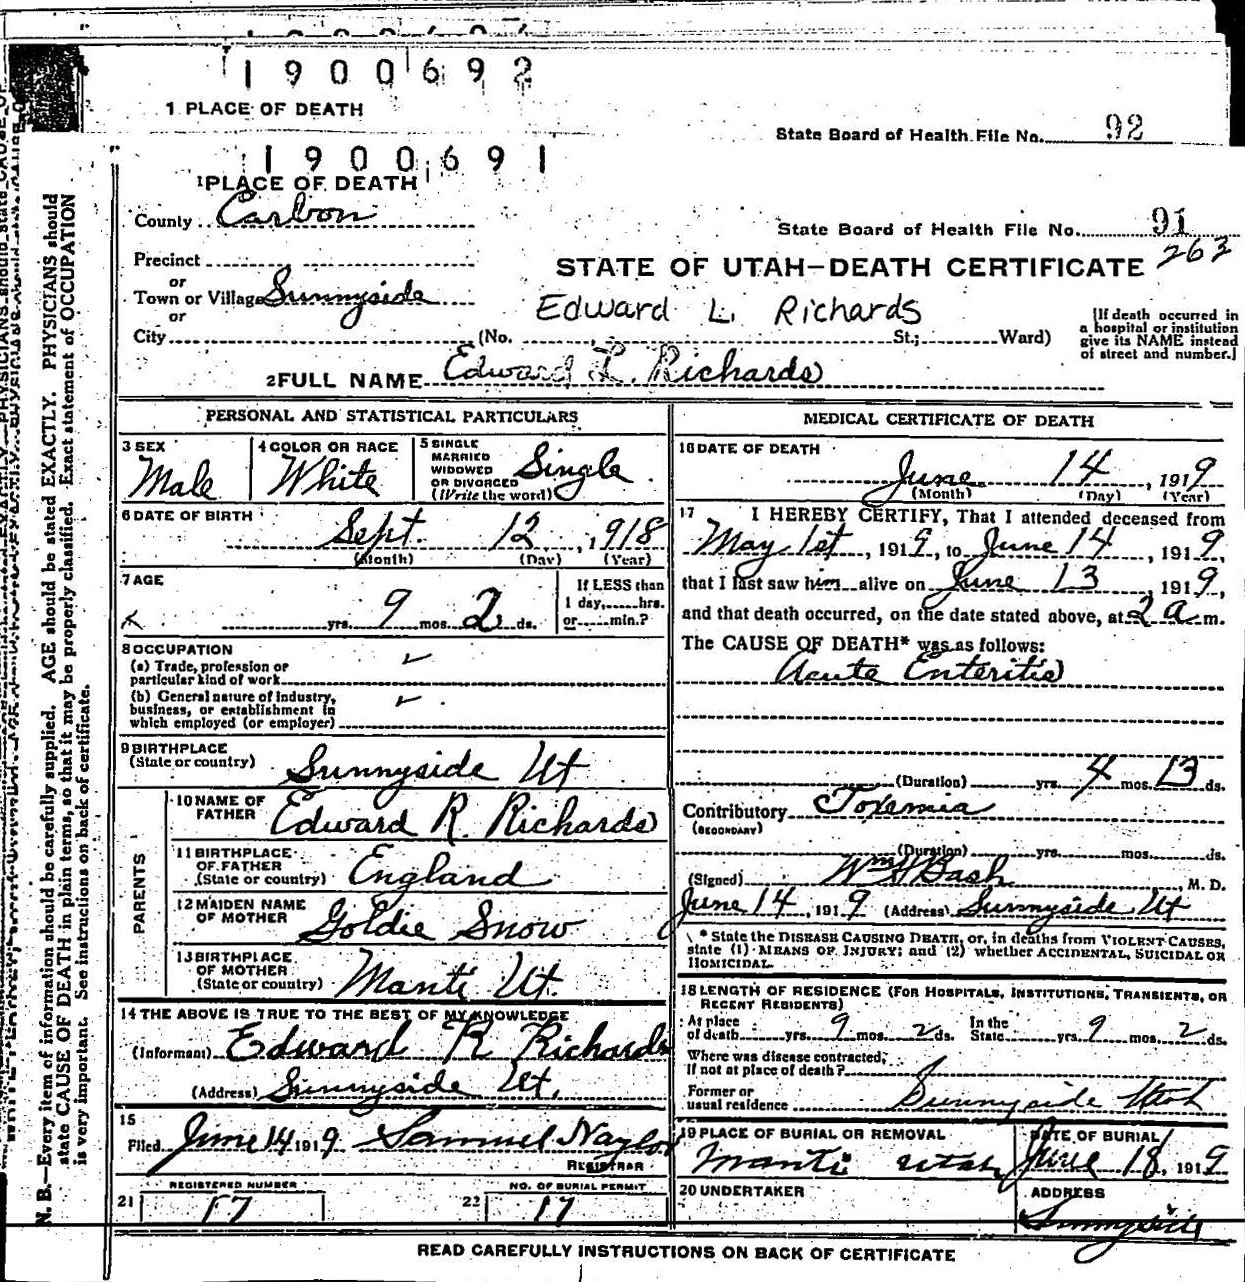 1900692
1 PLACE OF DEATH
State Board of Health File No. 92
1900691
1 PLACE OF DEATH
County Carbon
State Board of Health File No. 91
263
Precinct
STATE OF UTAH—DEATH CERTIFICATE
or
Town or Village Sunnyside
Edward L. Richards
or
City (No. St.; Ward)
[If death occurred in
a hospital or institution
give its NAME instead
of street and number.]
2 FULL NAME Edward L. Richards
PERSONAL AND STATISTICAL PARTICULARS
3 SEX
Male
4 COLOR OR RACE
White
5 SINGLE
MARRIED
WIDOWED
OR DIVORCED
(Write the word)
Single
6 DATE OF BIRTH
Sept. 12, 1918
(Month) (Day) (Year)
7 AGE
yrs. 9 mos. 2 ds.
If LESS than
1 day, hrs.
or min.?
8 OCCUPATION
(a) Trade, profession or
particular kind of work
(b) General nature of Industry,
business, or establishment in
which employed (or employer)
9 BIRTHPLACE
(State or country)
Sunnyside Ut
PARENTS
10 NAME OF
FATHER
Edward R. Richards
11 BIRTHPLACE
OF FATHER
(State or country)
England
12 MAIDEN NAME
OF MOTHER
Goldie Snow
13 BIRTHPLACE
OF MOTHER
(State or country)
Manti Ut.
14 THE ABOVE IS TRUE TO THE BEST OF MY KNOWLEDGE
(Informant) Edward R Richards
(Address) Sunnyside Ut.
15
Filed June 14 1919 Samuel Naylor
REGISTRAR
REGISTERED NUMBER
21 17
NO. OF BURIAL PERMIT
22 17
MEDICAL CERTIFICATE OF DEATH
16 DATE OF DEATH
June 14, 1919
(Month) (Day) (Year)
17 I HEREBY CERTIFY, That I attended deceased from
May 1st, 1919, to June 14, 1919,
that I last saw him alive on June 13, 1919,
and that death occurred, on the date stated above, at 2 a m.
The CAUSE OF DEATH* was as follows:
Acute Enteritis
(Duration) yrs. 4 mos. 13 ds.
Contributory Toxemia
(SECONDARY)
(Duration) yrs. mos. ds.
(Signed) Wm Dash, M. D.
June 14, 1919 (Address) Sunnyside Ut
* State the DISEASE CAUSING DEATH, or, in deaths from VIOLENT CAUSES,
state (1) MEANS OF INJURY; and (2) whether ACCIDENTAL, SUICIDAL OR
HOMICIDAL.
18 LENGTH OF RESIDENCE (FOR HOSPITALS, INSTITUTIONS, TRANSIENTS, OR
RECENT RESIDENTS)
At place
of death yrs. 9 mos. 2 ds. In the
State yrs. 9 mos. 2 ds.
Where was disease contracted,
If not at place of death?
Former or
usual residence Sunnyside Utah
19 PLACE OF BURIAL OR REMOVAL
Manti Utah
DATE OF BURIAL
June 18, 1919
20 UNDERTAKER
ADDRESS
Sunnyside
READ CAREFULLY INSTRUCTIONS ON BACK OF CERTIFICATE
N. B.—Every item of information should be carefully supplied. AGE should be stated EXACTLY. PHYSICIANS should
state CAUSE OF DEATH in plain terms, so that it may be properly classified. Exact statement of OCCUPATION
is very important. See instructions on back of certificate.